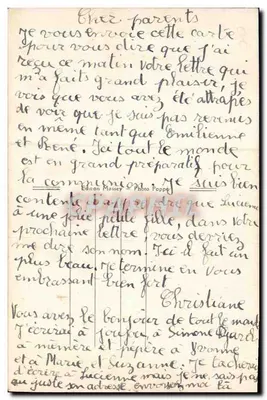 Cher parents
Je vous envoie cette carte
pour vous dire que j'ai
reçu ce matin votre lettre qui
m'a faits grand plaisir, je
vois que vous avez été attrapés
de voir que je sais pas revenus
en même tant que Emilienne
et René. Ici tout le monde
est en grand préparatif pour
la communion. Je suis bien
contente que Lucienne
à une jolie petite fille, dans votre
prochaine lettre, vous devriez
me dire son nom. Ici il fait un
plus beau. Je termine en vous
embrassant bien fort
Christiane
Vous avez le bonjour de tout le monde
J'écrirai à Simone
à mémère et pépère à Yvonne
et à Marie, et Suzanne. Je tacherai
d'écrire à Lucienne mais je ne sais pas
au juste son adresse.